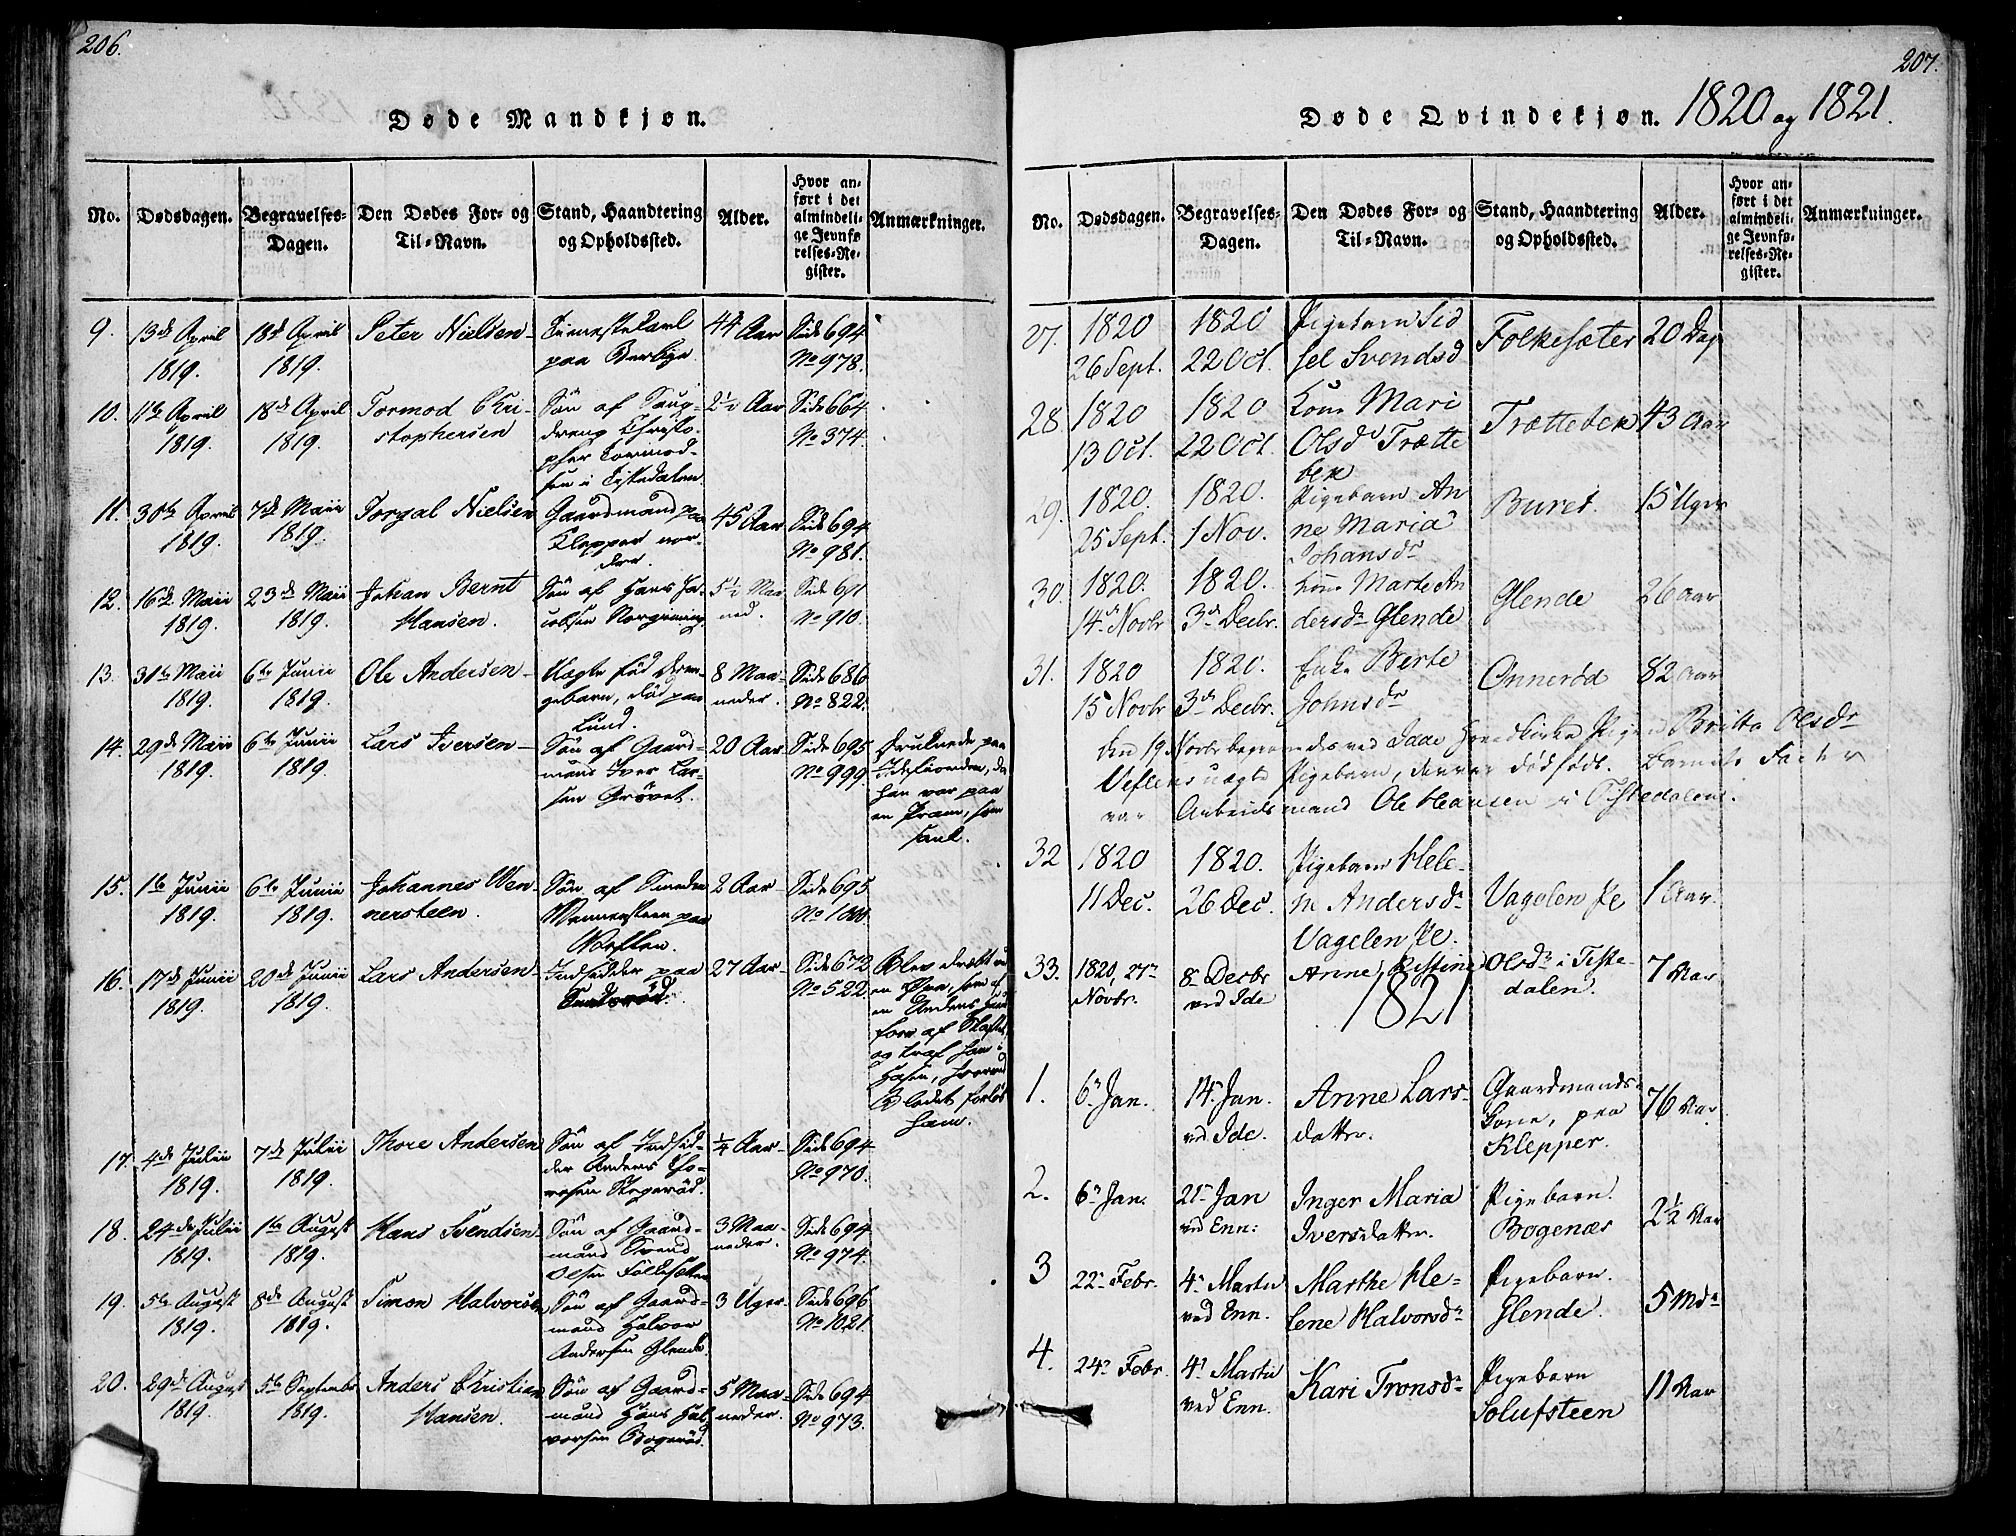 206.
Døde Mandkjøn.
No. Dødsdagen. Begravelses-Dagen. Den Dødes For- og Til-Navn. Stand, Haandtering og Opholdssted. Alder. Hvor anført i det almindelige Jevnførelses-Register. Anmærkninger.
9. 13de April 1819. 18de April 1819. Peter Nielsen paa 44 Aar Side 694 No 978.
10. April 1819. 18de April 1819. Tormod Christophersen Søn af Christopher Tormodsen i Tistedalen 2½ Aar Side 664 No 374.
11. 30te April 1819. 7de Maii 1819. Torgal Nielsen Gaardmand paa Klepper nordre. 45 Aar Side 694 No 981.
12. 16de Maii 1819. 23de Maii 1819. Johan Bernt Hansen. Søn af Hans Jacobsen 5½ Maaned. Side 691 No 910.
13. 31te Maii 1819. 6te Junii 1819. Ole Andersen Uægte fød Drengebarn, død paa Lund. 8 Maaneder. Side 686 No 822.
14. 29de Maii 1819. 6te Junii 1819. Lars Iversen Søn af Gaardmand Iver Larsen Grøvet. 20 Aar Side 695 No 999. Druknede paa da han var paa en Pram, som sank.
15. 1te Junii 1819. 6te Junii 1819. Johannes Wennersteen. Søn af Wennersteen paa 2 Aar Side 695
16. 17de Junii 1819. 20de Junii 1819. Lars Andersen Indsidder paa 27 Aar Side 672 No 522 Blev dræbt en Øxe, som en Anden for af Skaftet, og traf ham i Hasen, Blodet forlod ham.
17. 4de Julii 1819. 7de Julii 1819. Thore Andersen Søn af Indsidder Anders Thoresen ¼ Aar Side 694 No 970.
18. 24de Julii 1819. 1te August 1819. Hans Svendsen Søn af Gaardmand Svend Olsen Folkesæter 3 Maaneder. Side 694 No 974.
19. 5te August 1819. 8de August 1819. Simon Halvorsen Søn af Gaardmand Halvor Andersen Glende. 3 Uger Side 696 No 1021.
20. 29de August 1819. 5te September 1819. Anders Christian Hansen. Søn af Gaardmand Hans Halvorsen Bogerød. 5 Maaneder. Side 694 No 973.
207.
Døde Qvindekjøn. 1820 og 1821.
No. Dødsdagen. Begravelses-Dagen. Den Dødes For- og Til-Navn. Stand, Haandtering og Opholdssted. Alder. Hvor anført i det almindelige Jevnførelses-Register. Anmærkninger.
27. 1820 26 Sept. 1820 22 Oct. Pigebarn Sidsel Svendsd Folkesæter 20 Dag
28. 1820 13 Oct. 1820 22 Oct Kone Mari Olsd Trætteben Trætteben 43 Aar
29. 1820. 25 Sept. 1820. 1 Nov. Pigebarn Anne Maria Johansdr Buret. 15 Uger
30. 1820. 14de Novbr 1820. 3de Decbr. Kone Marte Andersdr Glende Glende 26 Aar
31. 1820 15 Novbr 1820. 3de Decbr. Enke Berte Johnsdr Onnerød 82 Aar
Den 19 Novbr begravedes ved Idde Hovedkirke Pigen Britta Olsdr
uægte Pigebarn, der var dødfødt. Barnets Fader
var Arbeidsmand Ole Hansen i Tistedalen.
32 1820 11 Dec. 1820. 26 Dec. Pigebarn Helene Andersdr Vagelen Pe. Vagelen Pe 1 Aar.
33. 1820, 27n Novbr. 8n Decbr ved Ide Anne Kistine Olsdr i Tistedalen. 7 Aar
1821
1. 6n Jan. 14n Jan. ved Ide. Anne Larsdatter. Gaardmandskone, paa Klepper. 76 Aar
2. 6n Jan. 21n Jan ved Enn: Inger Maria Iversdatter. Pigebarn. Bogenæs 2½ Aar
3 22n Febr. 4n Martii ved Enn. Marthe Helene Halvorsdr Pigebarn. Glende. 5 Mdr
4. 24n Febr 4n Martii ved Enn. Kari Tronsdr Pigebarn Solufsteen 11 Aar